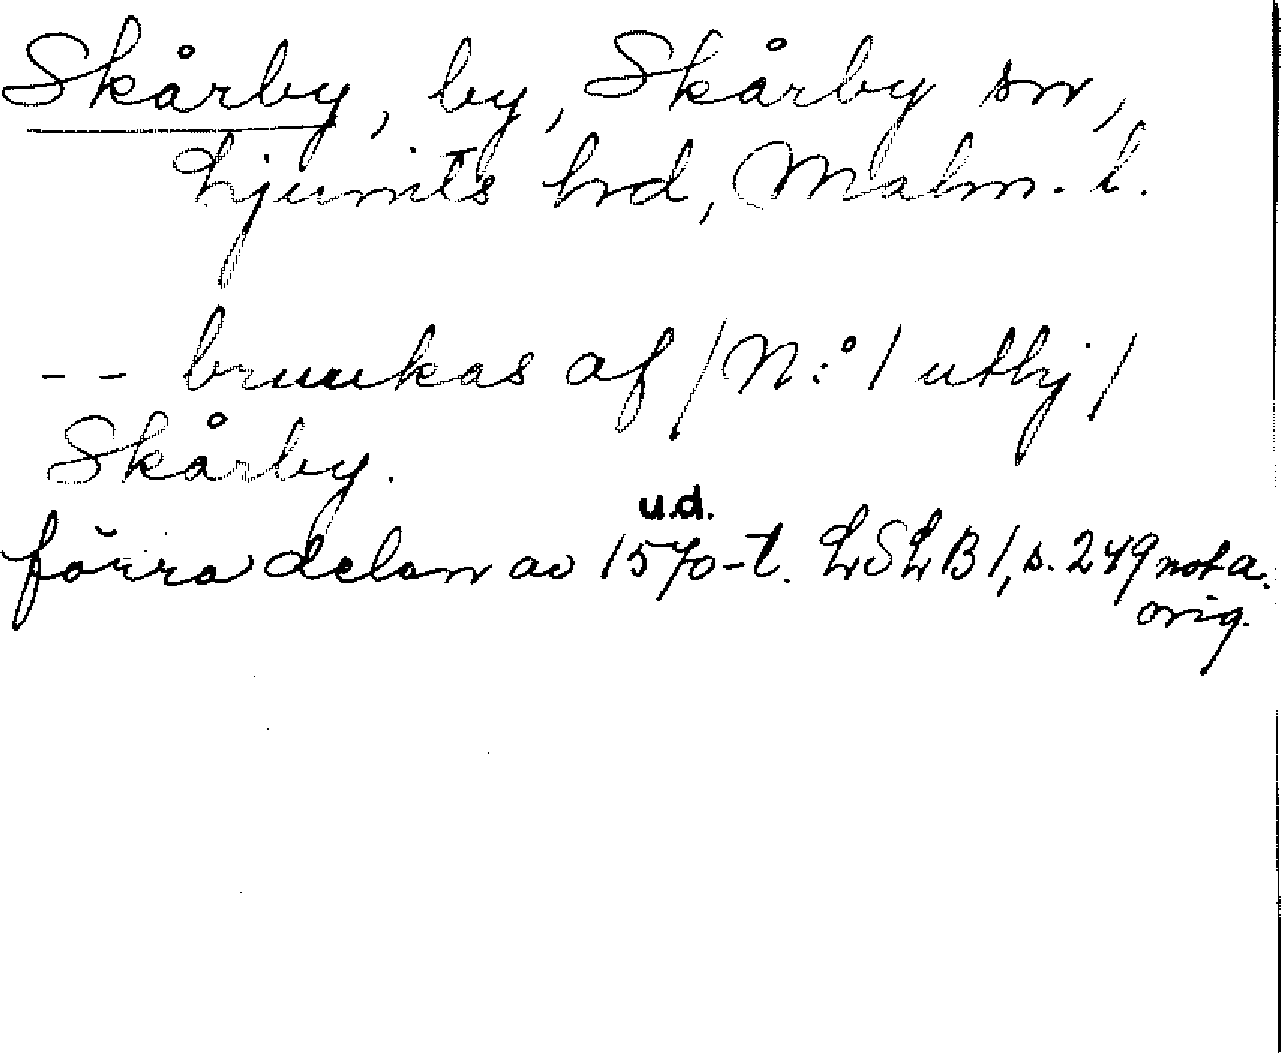 Skårby, by, Skårby sn,
Ljunits hrd, Malm. l.
-- bruukas af / N:o 1 utbj /
Skårby.
u.d.
förra delen av 1570-t. LSLB 1, s. 249 nota.
orig.